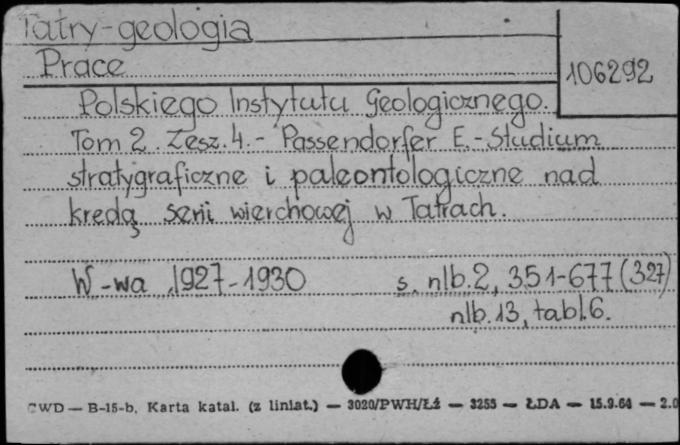 Tatry-geologia
Prace
106292
Polskiego Instytutu Geologicznego.
Tom 2. Zesz. 4. - Passendorfer E. - Studium
stratygraficzne i paleontologiczne nad
kredą serii wierchowej w Tatrach.
W-wa, 1927-1930 s. nlb. 2, 351-677 (327)
nlb. 13, tabl. 6.
CWD — B-15-b, Karta katal. (z liniat.) — 3020/PWH/Łź — 3255 — ŁDA — 15.9.64 — 2.0